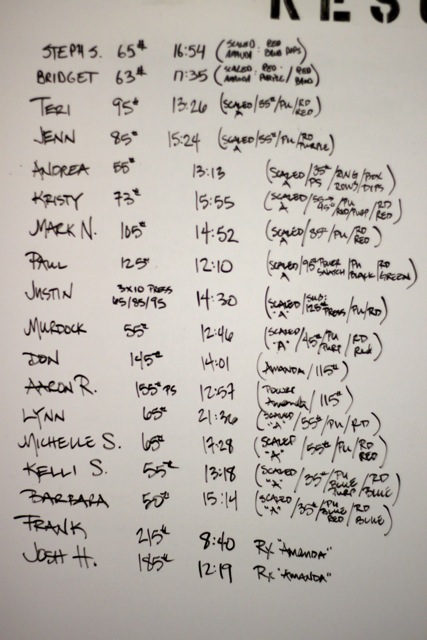 RESU
STEPH S. 65# 16:54 (SCALED AMANDA: RED BAND DIPS)
BRIDGET 63# 17:35 (SCALED AMANDA: RED PURPLE/RED BAND)
TERI 95# 13:26 (SCALED A/55#/PU/RD RED)
JENN 85# 15:24 (SCALED A/55#/PU/RD PURPLE)
ANDREA 55# 13:13 (SCALED A/35# PS/RING ROWS/BOX DIPS)
KRISTY 73# 15:55 (SCALED A/PU RED/PURP/RD RED)
MARK N. 105# 14:52 (SCALED A/85#/PU/RD RED)
PAUL 125# 12:10 (SCALED A/95# POWER SNATCH/PU BLACK/RD GREEN)
JUSTIN 3x10 PRESS 65/85/95 14:30 (SCALED "A"/SUB: 125# PRESS/PU/RD)
MURDOCK 55# 12:46 (SCALED "A"/45#/PU PURP/RD RED)
DON 145# 14:01 (AMANDA/115#)
AARON R. 155# PS 12:57 (POWER AMANDA/115#)
LYNN 65# 21:36 (SCALED "A"/55#/PU/RD)
MICHELLE S. 65# 17:28 (SCALED "A"/55#/PU/RD RED)
KELLI S. 55# 13:18 (SCALED "A"/35#/PU BLUE PURP/RD BLUE)
BARBARA 50# 15:14 (SCALED "A"/35#/PU BLUE RED/RD BLUE)
FRANK 215# 8:40 Rx "AMANDA"
JOSH H. 185# 12:19 Rx "AMANDA"